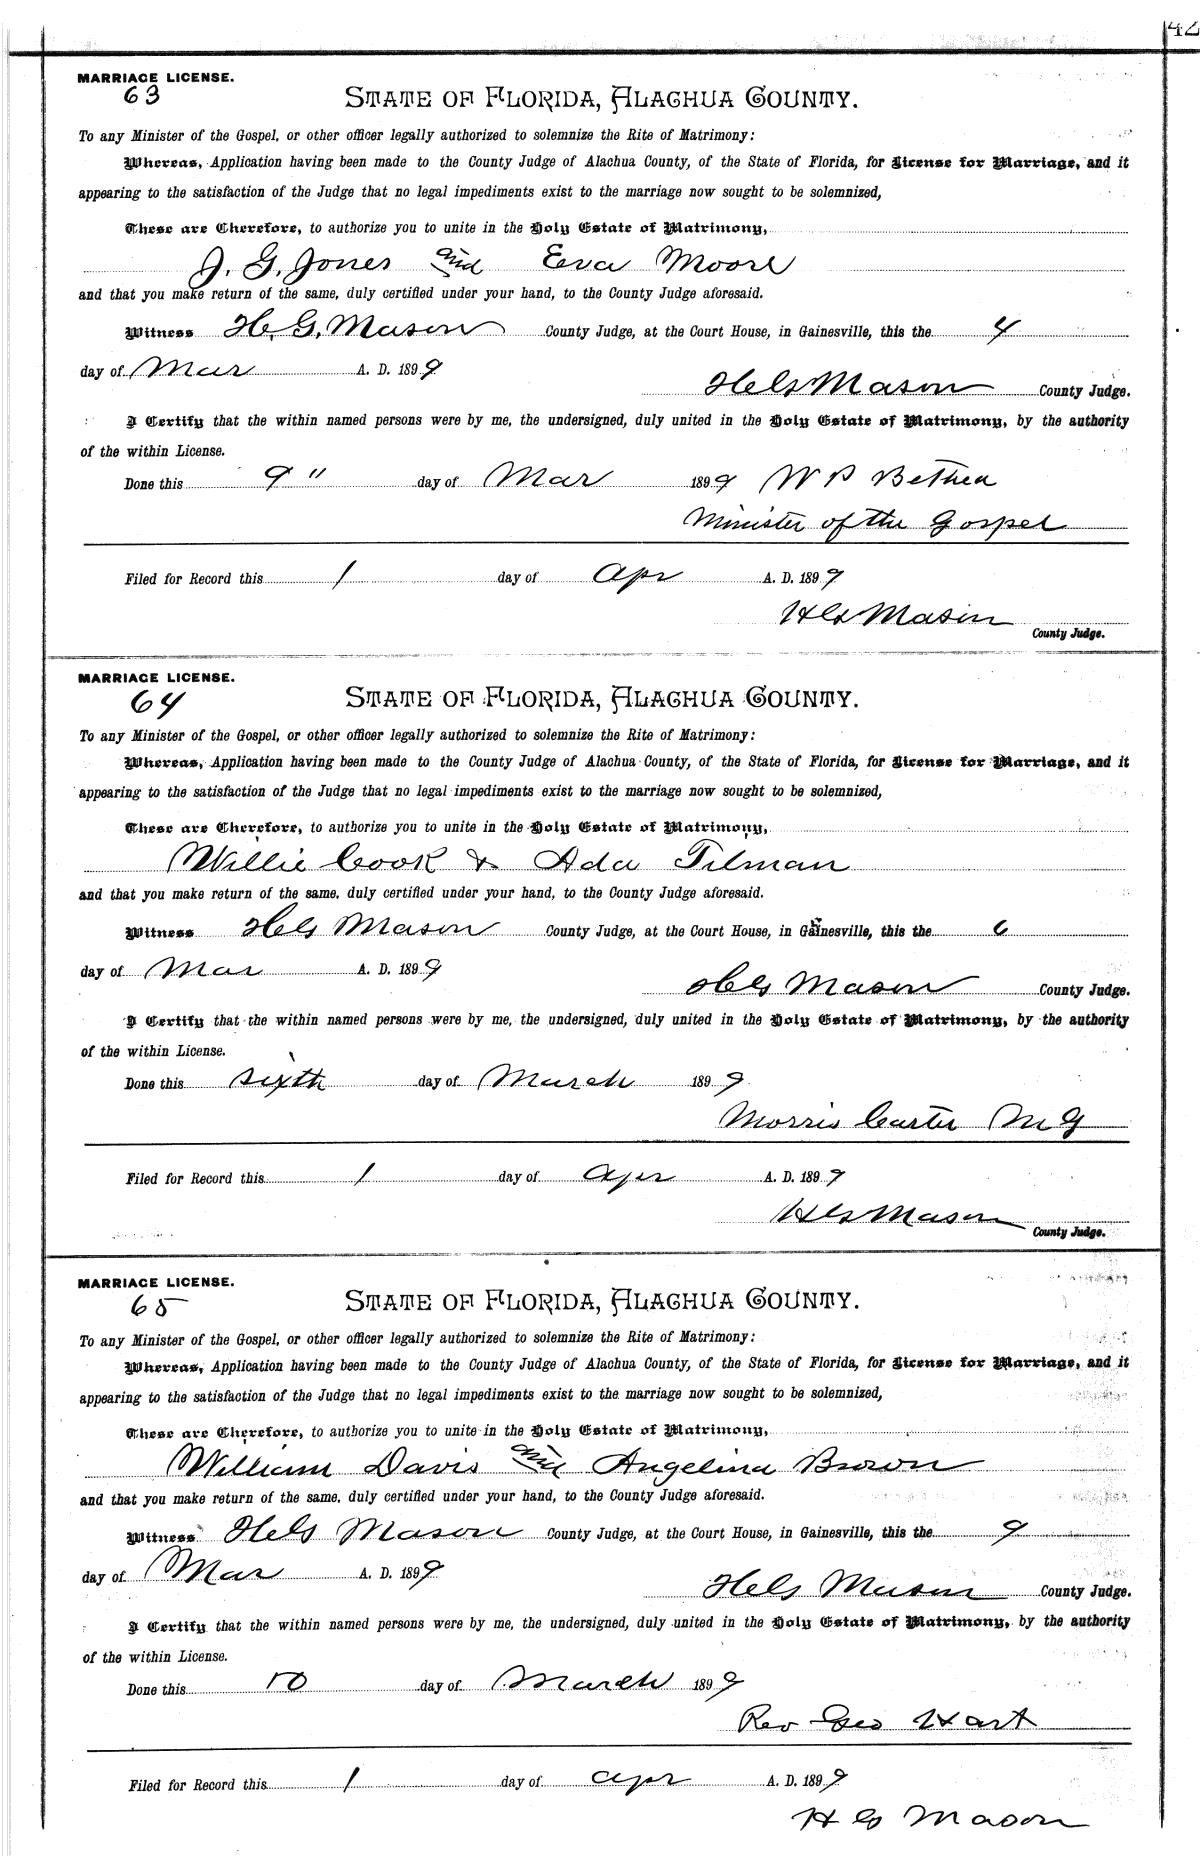 42
MARRIAGE LICENSE.
63
STATE OF FLORIDA, ALACHUA COUNTY.
To any Minister of the Gospel, or other officer legally authorized to solemnize the Rite of Matrimony:
Whereas, Application having been made to the County Judge of Alachua County, of the State of Florida, for License for Marriage, and it
appearing to the satisfaction of the Judge that no legal impediments exist to the marriage now sought to be solemnized,
These are Therefore, to authorize you to unite in the Holy Estate of Matrimony,
J. G. Jones and Eva Moore
and that you make return of the same, duly certified under your hand, to the County Judge aforesaid.
Witness H. G. Mason County Judge, at the Court House, in Gainesville, this the 4
day of Mar A. D. 1899
H G Mason County Judge.
I Certify that the within named persons were by me, the undersigned, duly united in the Holy Estate of Matrimony, by the authority
of the within License.
Done this 9" day of Mar 1899 W P Bethea
Minister of the Gospel
Filed for Record this 1 day of Apr A. D. 1899
H G Mason
County Judge.
MARRIAGE LICENSE.
64
STATE OF FLORIDA, ALACHUA COUNTY.
To any Minister of the Gospel, or other officer legally authorized to solemnize the Rite of Matrimony:
Whereas, Application having been made to the County Judge of Alachua County, of the State of Florida, for License for Marriage, and it
appearing to the satisfaction of the Judge that no legal impediments exist to the marriage now sought to be solemnized,
These are Therefore, to authorize you to unite in the Holy Estate of Matrimony,
Willie Cook & Ada Tilman
and that you make return of the same, duly certified under your hand, to the County Judge aforesaid.
Witness H G Mason County Judge, at the Court House, in Gainesville, this the 6
day of Mar A. D. 1899
H G Mason County Judge.
I Certify that the within named persons were by me, the undersigned, duly united in the Holy Estate of Matrimony, by the authority
of the within License.
Done this sixth day of March 1899
Morris Carter M G
Filed for Record this 1 day of Apr A. D. 1899
H G Mason
County Judge.
MARRIAGE LICENSE.
65
STATE OF FLORIDA, ALACHUA COUNTY.
To any Minister of the Gospel, or other officer legally authorized to solemnize the Rite of Matrimony:
Whereas, Application having been made to the County Judge of Alachua County, of the State of Florida, for License for Marriage, and it
appearing to the satisfaction of the Judge that no legal impediments exist to the marriage now sought to be solemnized,
These are Therefore, to authorize you to unite in the Holy Estate of Matrimony,
William Davis and Angelina Brown
and that you make return of the same, duly certified under your hand, to the County Judge aforesaid.
Witness H G Mason County Judge, at the Court House, in Gainesville, this the 9
day of Mar A. D. 1899
H G Mason County Judge.
I Certify that the within named persons were by me, the undersigned, duly united in the Holy Estate of Matrimony, by the authority
of the within License.
Done this 10 day of March 1899
Rev Geo Hart
Filed for Record this 1 day of Apr A. D. 1899
H G Mason